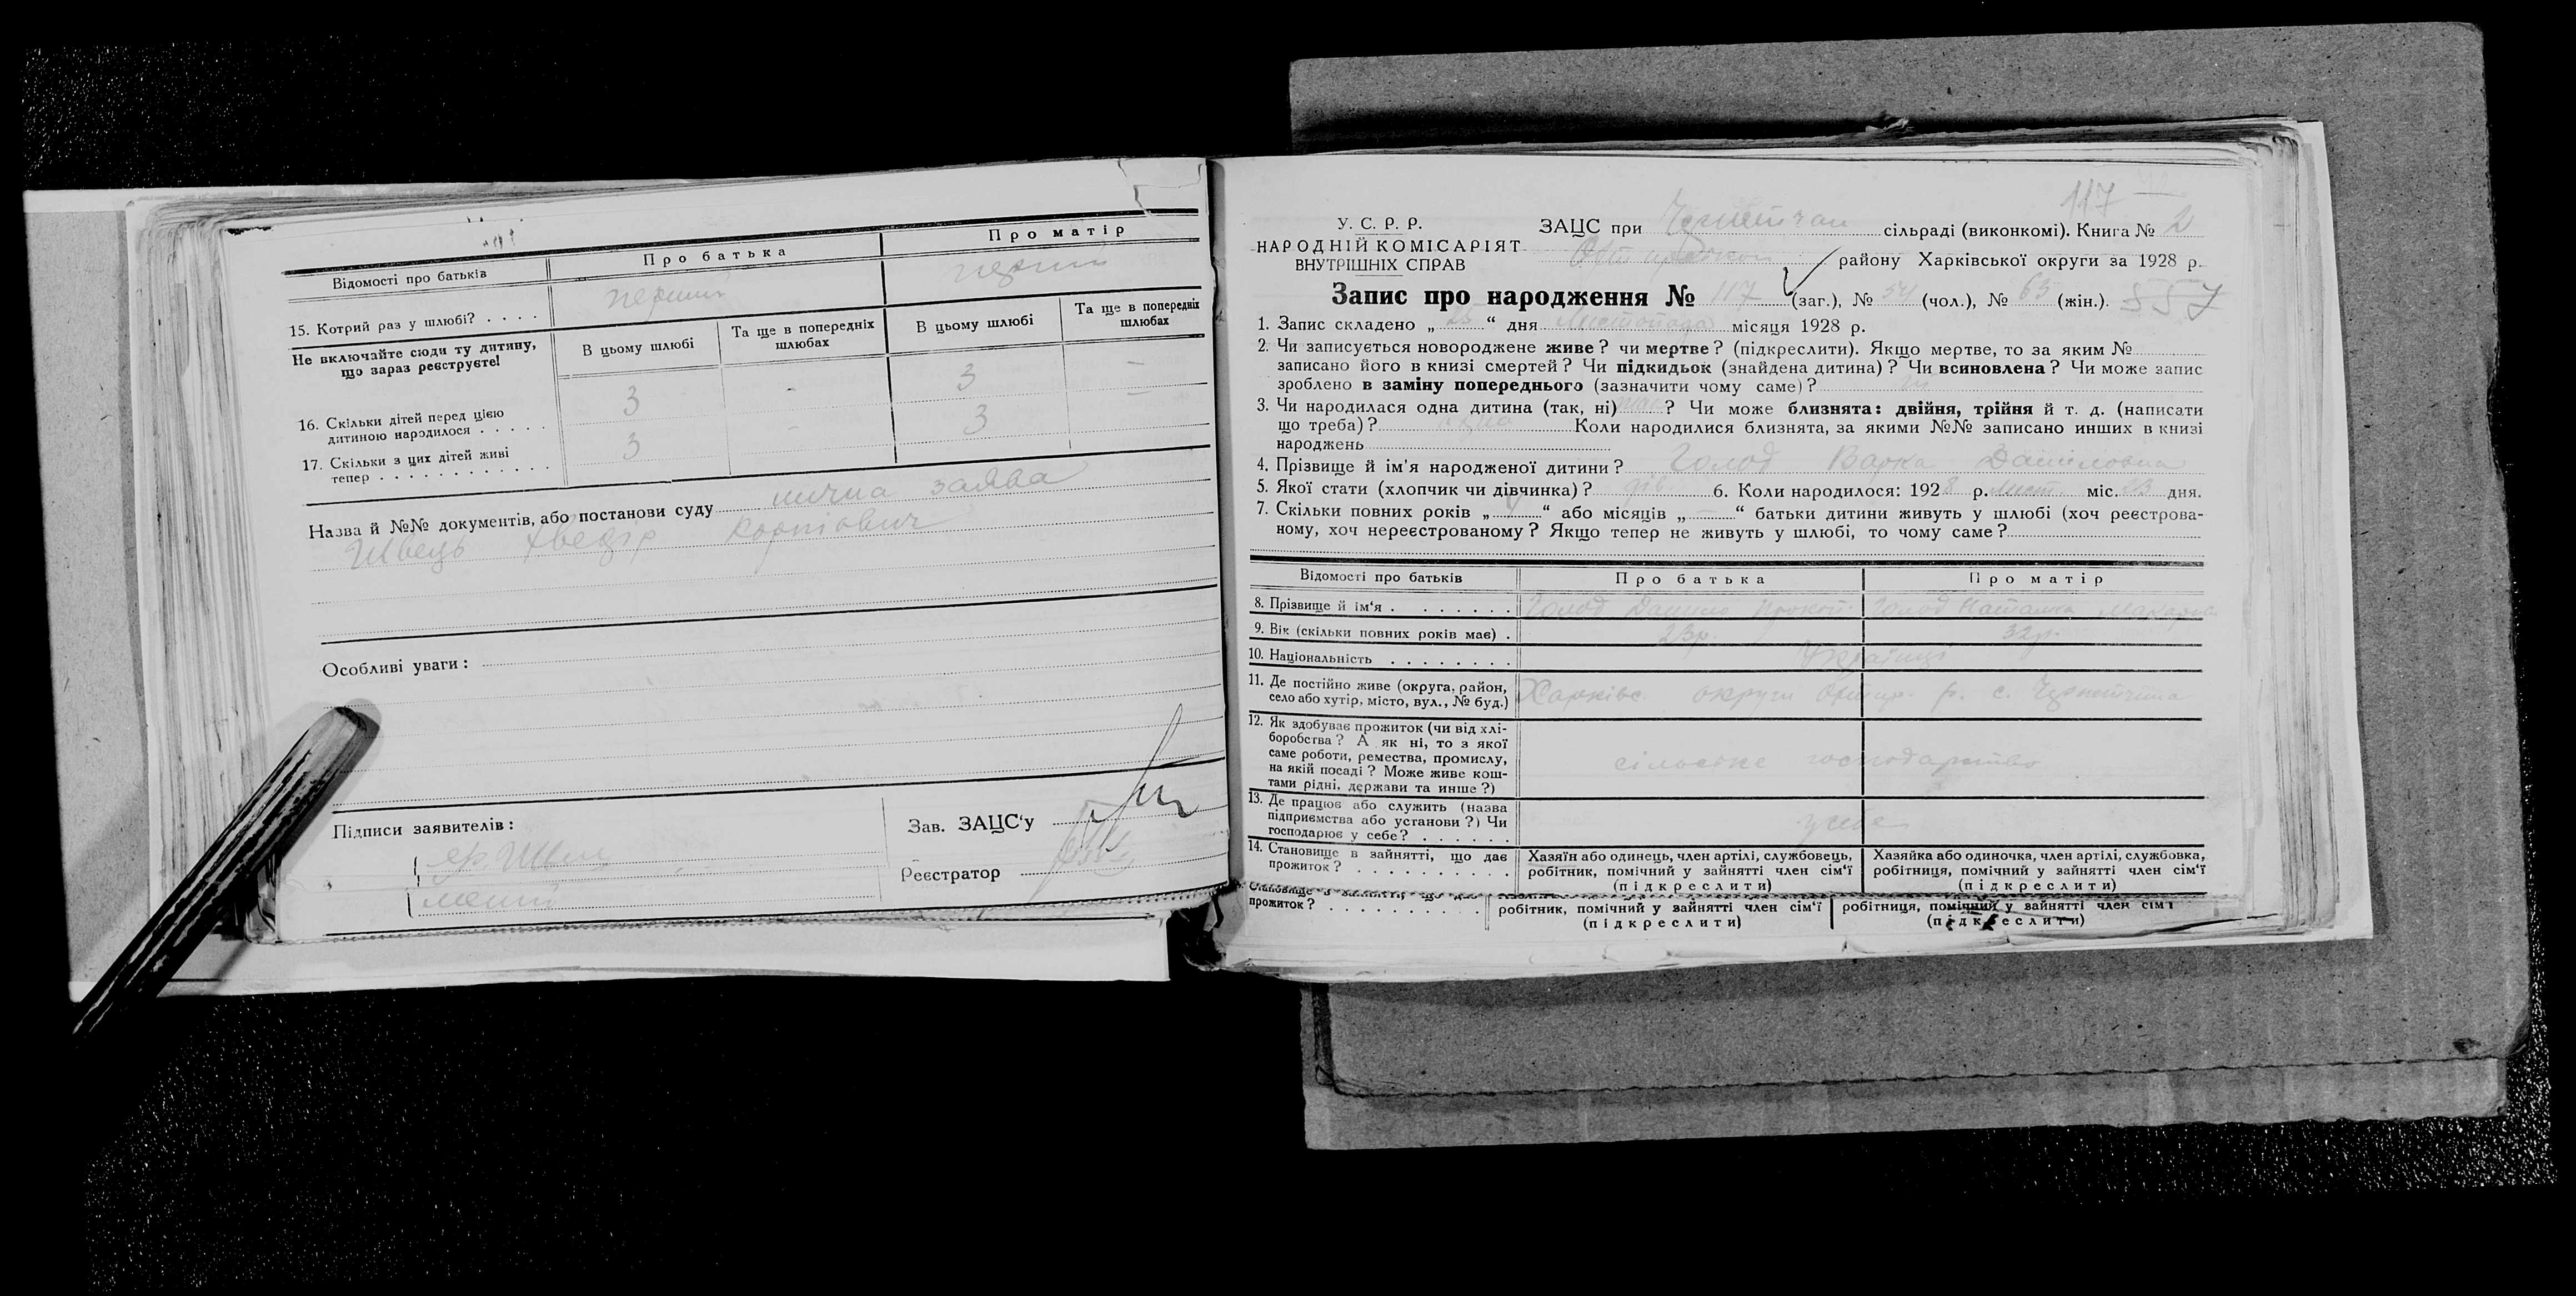 Відомості про батьків
Про батька
Про матір
15. Котрий раз у шлюбі? . . . .
перший
перший
Не включайте сюди ту дитину, що зараз реєструєте!
В цьому шлюбі
Та ще в попередніх шлюбах
В цьому шлюбі
Та ще в попередніх шлюбах
16. Скільки дітей перед цією
дитиною народилося . . . . .
3 - 3 -
17. Скільки з цих дітей живі
тепер . . . . . . . . . . . .
3 - 3 -
Назва й №№ документів, або постанови суду заява
Швець Хведір Карпович
Особливі уваги:
Підписи заявителів:
Зав. ЗАЦС'у
Реєстратор
117
У. С. Р. Р.
НАРОДНІЙ КОМІСАРІЯТ
ВНУТРІШНІХ СПРАВ
ЗАЦС при сільраді (виконкомі). Книга № 2
району Харківської округи за 1928 р.
Запис про народження № 117 (заг.), № 54 (чол.), № 63 (жін.). 557
1. Запис складено „ “ дня Листопада місяця 1928 р.
2. Чи записується новороджене живе? чи мертве? (підкреслити). Якщо мертве, то за яким №
записано його в книзі смертей? Чи підкидьок (знайдена дитина)? Чи всиновлена? Чи може запис
зроблено в заміну попереднього (зазначити чому саме)?
3. Чи народилася одна дитина (так, ні) так? Чи може близнята: двійня, трійня й т. д. (написати
що треба)? одна Коли народилися близнята, за якими №№ записано инших в книзі
народжень
4. Прізвище й ім'я народженої дитини? Голод Варка Даніловна
5. Якої стати (хлопчик чи дівчинка)? дів. 6. Коли народилося: 1928 р. лист. міс. 23 дня.
7. Скільки повних років „ “ або місяців „—“ батьки дитини живуть у шлюбі (хоч реєстрова-
ному, хоч нереєстрованому? Якщо тепер не живуть у шлюбі, то чому саме?
Відомості про батьків
Про батька
Про матір
8. Прізвище й ім'я . . . . . . .
Голод
Голод
9. Вік (скільки повних років має) .
32р.
10. Національність . . . . . . . .
Українці
11. Де постійно живе (округа, район,
село або хутір, місто, вул., № буд.)
Харківс. округи р. с.
12. Як здобуває прожиток (чи від хлі-
боробства? А як ні, то з якої
саме роботи, ремества, промислу,
на якій посаді? Може живе кош-
тами рідні, держави та инше?)
сільське господарство
13. Де працює або служить (назва
підприємства або установи?) Чи
господарює у себе? . . . . . .
у себе
14. Становище в зайнятті, що дає
прожиток? . . . . . . . . . .
Хазяїн або одинець, член артілі, службовець,
робітник, помічний у зайнятті член сім'ї
(підкреслити)
Хазяйка або одиночка, член артілі, службовка,
робітниця, помічний у зайнятті член сім'ї
(підкреслити)
прожиток? . . . . . . . . . .
робітник, помічний у зайнятті член сім'ї
(підкреслити)
робітниця, помічний у зайнятті член сім'ї
(підкреслити)